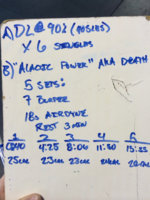 A) DL @ 90% (145LBS)
X 6 SINGLES
B) "ALACTIC POWER" AKA DEATH
5 SETS:
7 BURPEE
18s AIRDYNE
REST 3 MIN
1 2 3 4 5
4:25 8:04 11:50 15:33
25CAL 23CAL 23CAL